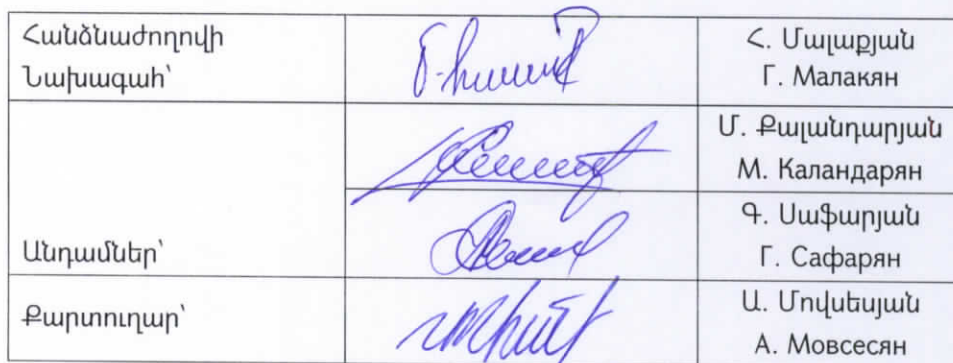 Հանձնաժողովի
Նախագահ՝
Հ. Մալաքյան
Г. Малакян
Մ. Քալանդարյան
М. Каландарян
Անդամներ՝
Գ. Սաֆարյան
Г. Сафарян
Քարտուղար՝
Ա. Մովսեսյան
А. Мовсесян